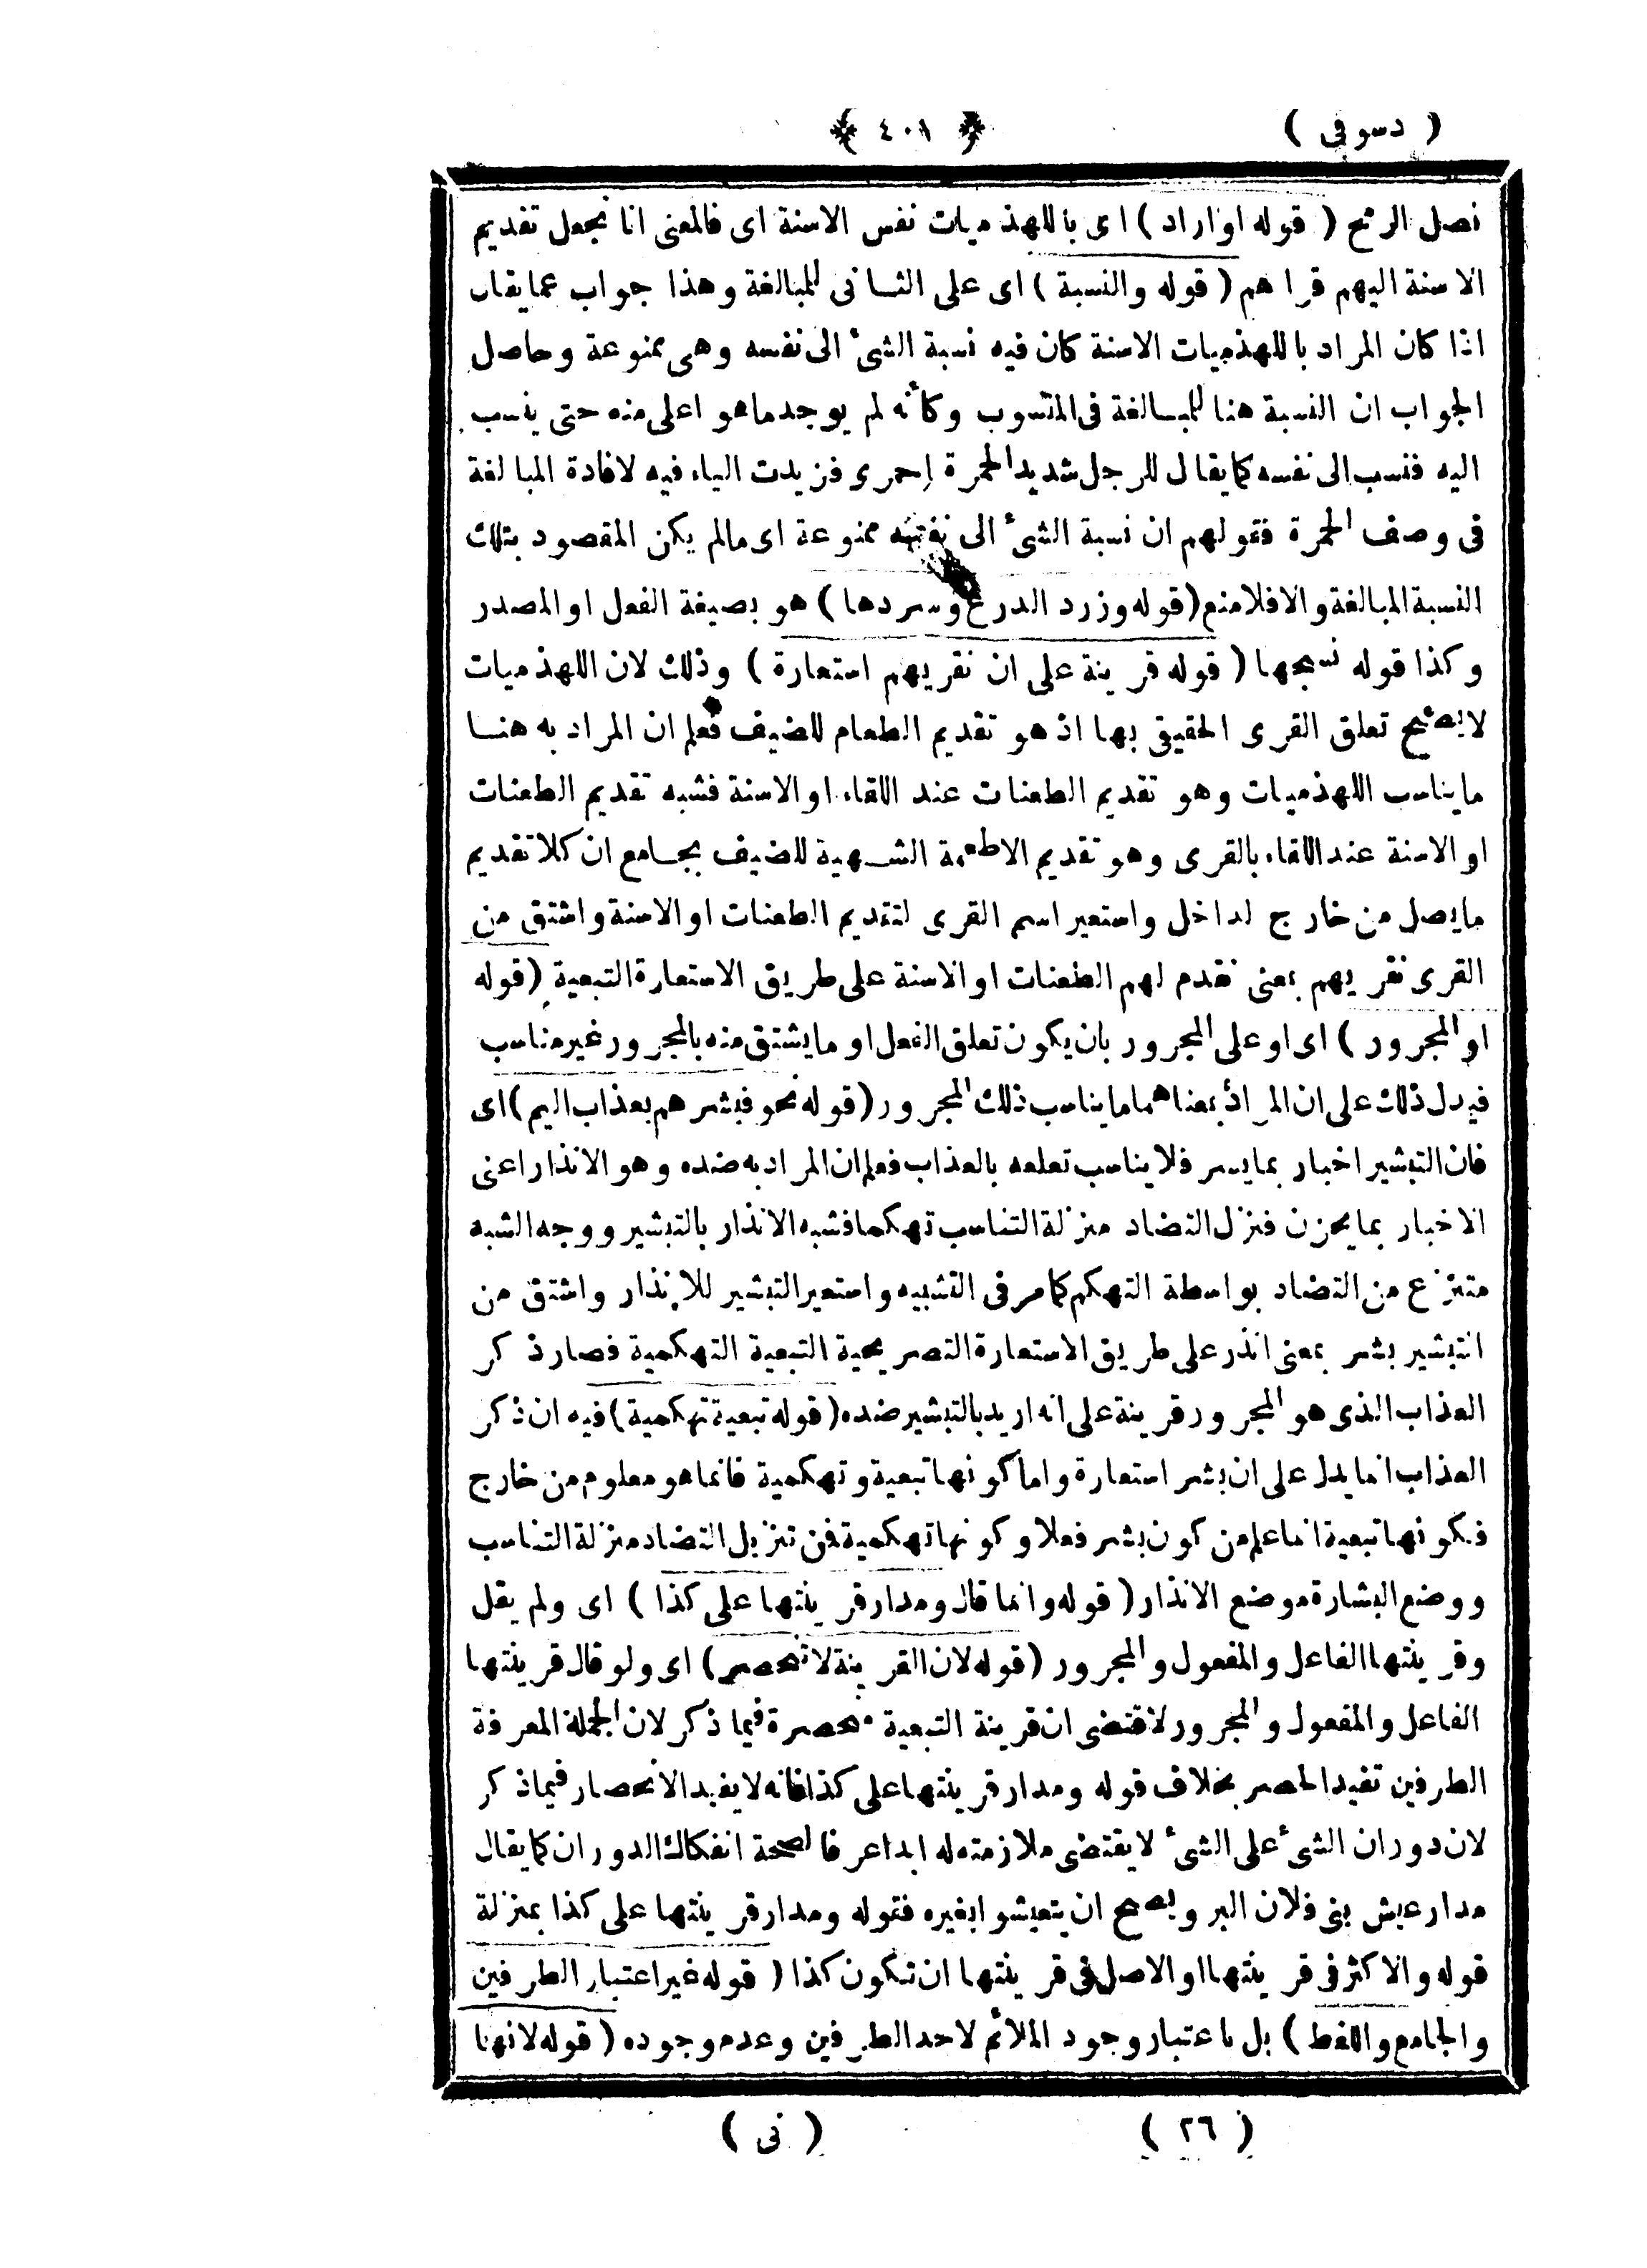 ( دسوقى ) ﴿ ٤٠١ ﴾
نصل الرمح ( قوله او اراد ) اى باللهذميات نفس الاسنة اى فالمعنى انا نجعل تقديم
الاسنة اليهم قراهم ( قوله والنسبة ) اى على الثانى للمبالغة وهذا جواب عما يقال
اذا كان المراد باللهذميات الاسنة كان فيه نسبة الشئ الى نفسه وهى ممنوعة وحاصل
الجواب ان النسبة هنا للمبالغة فى المنسوب وكأنه لم يوجد ماهو اعلى منه حتى ينسب
اليه فنسب الى نفسه كما يقال للرجل شديد الحمرة احمرى فزيدت الياء فيه لافادة المبالغة
فى وصف الحمرة فقولهم ان نسبة الشئ الى نفسه ممنوعة اى مالم يكن المقصود بتلك
النسبة المبالغة والا فلا منع ( قوله وزرد الدرع وسردها ) هو بصيغة الفعل او المصدر
وكذا قوله نسجها ( قوله قرينة على ان نقريهم استعارة ) وذلك لان اللهذميات
لا يصح تعلق القرى الحقيقى بها اذ هو تقديم الطعام للضيف فعلم ان المراد به هنا
ما يناسب اللهذميات وهو تقديم الطعنات عند اللقاء او الاسنة فشبه تقديم الطعنات
او الاسنة عند اللقاء بالقرى وهو تقديم الاطعمة الشهية للضيف بجامع ان كلا تقديم
ما يصل من خارج لداخل واستعير اسم القرى لتقديم الطعنات او الاسنة واشتق من
القرى نقريهم بمعنى نقدم لهم الطعنات او الاسنة على طريق الاستعارة التبعية ( قوله
او المجرور ) اى او على المجرور بان يكون تعلق الفعل او ما يشتق منه بالمجرور غير مناسب
فيدل ذلك على ان المراد بمعناهما ما يناسب ذلك المجرور ( قوله نحو فبشرهم بعذاب اليم ) اى
فان التبشير اخبار بما يسر فلا يناسب تعلقه بالعذاب فعلم ان المراد به ضده وهو الانذار اعنى
الاخبار بما يحزن فنزل التضاد منزلة التناسب تهكما فشبه الانذار بالتبشير ووجه الشبه
منتزع من التضاد بواسطة التهكم كما مر فى التشبيه واستعير التبشير للانذار واشتق من
التبشير بشر بمعنى انذر على طريق الاستعارة التصريحية التبعية التهكمية فصار ذكر
العذاب الذى هو المجرور قرينة على انه اريد بالتبشير ضده ( قوله تبعية تهكمية ) فيه ان ذكر
العذاب انما يدل على ان بشر استعارة واما كونها تبعية وتهكمية فانما هو معلوم من خارج
فكونها تبعية انما علم من كون بشر فعلا وكونها تهكمية فمن تنزيل التضاد منزلة التناسب
ووضع البشارة موضع الانذار ( قوله وانما قال ومدار قرينتها على كذا ) اى ولم يقل
وقرينتها الفاعل والمفعول والمجرور ( قوله لان القرينة لا تنحصر ) اى ولو قال قرينتها
الفاعل والمفعول والمجرور لاقتضى ان قرينة التبعية منحصرة فيما ذكر لان الجملة المعرفة
الطرفين تفيد الحصر بخلاف قوله ومدار قرينتها على كذا فانه لا يفيد الانحصار فيما ذكر
لان دوران الشئ على الشئ لا يقتضى ملازمته له ابدا عرفا لصحة انفكاك الدوران كما يقال
مدار عيش بنى فلان البر ويصح ان يتعيشوا بغيره فقوله ومدار قرينتها على كذا بمنزلة
قوله والاكثر فى قرينتها او الاصل فى قرينتها ان تكون كذا ( قوله غير اعتبار الطرفين
والجامع واللفظ ) بل باعتبار وجود الملائم لاحد الطرفين وعدم وجوده ( قوله لانها
( ٢٦ ) ( نى )